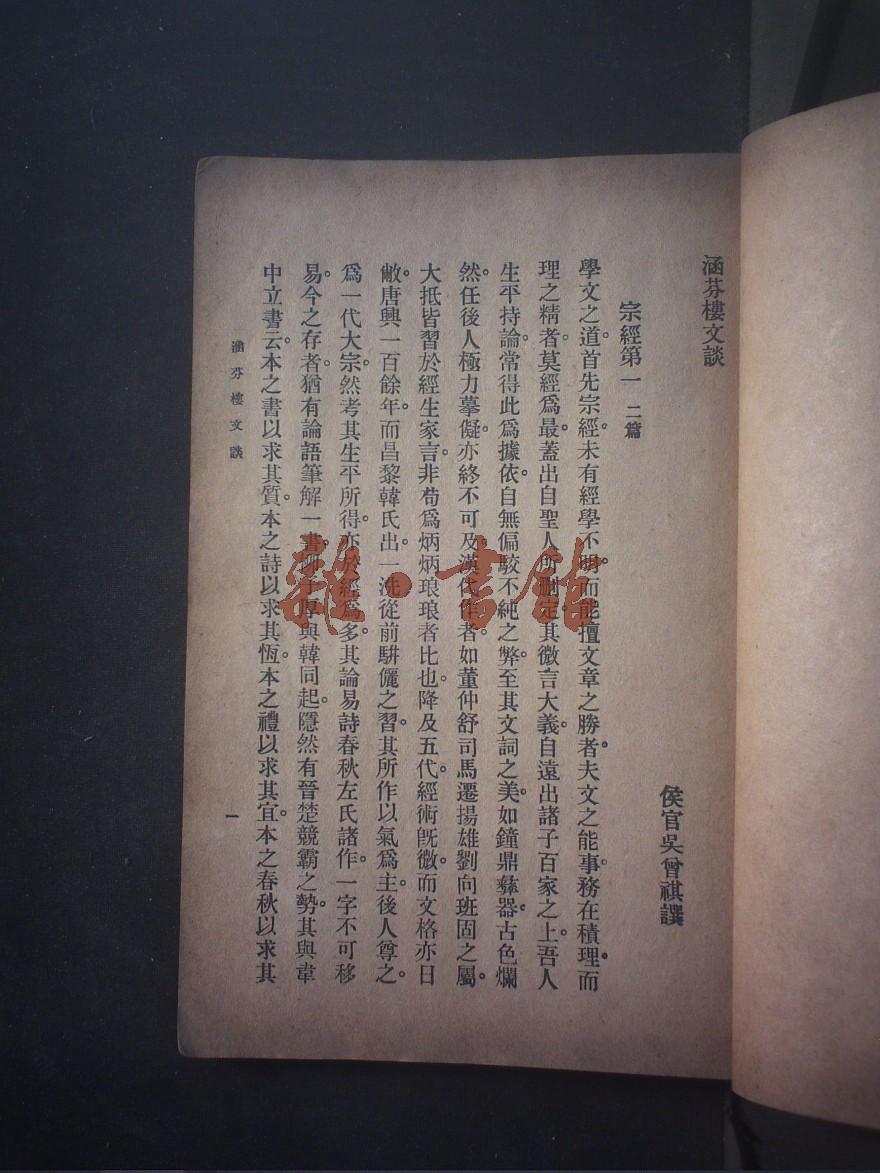 涵芬樓文談
侯官吳曾祺譔
宗經第一 二篇
學文之道。首先宗經。未有經學不明。而能擅文章之勝者。夫文之能事。務在積理。而
理之精者。莫經爲最。蓋出自聖人所刪定。其微言大義。自遠出諸子百家之上。吾人
生平持論。常得此爲據依。自無偏駮不純之弊。至其文詞之美。如鐘鼎彝器。古色爛
然。任後人極力摹儗。亦終不可及。漢代作者。如董仲舒司馬遷揚雄劉向班固之屬。
大抵皆習於經生家言。非苟爲炳炳琅琅者比也。降及五代。經術旣微。而文格亦日
敝。唐興一百餘年。而昌黎韓氏出。一洗從前駢儷之習。其所作以氣爲主。後人尊之。
爲一代大宗。然考其生平所得。亦於經爲多。其論易詩春秋左氏諸作。一字不可移
易。今之存者。猶有論語筆解一書。柳子厚與韓同起。隱然有晉楚競霸之勢。其與韋
中立書云。本之書以求其質。本之詩以求其恆。本之禮以求其宜。本之春秋以求其
涵芬樓文談
一
雜·書館